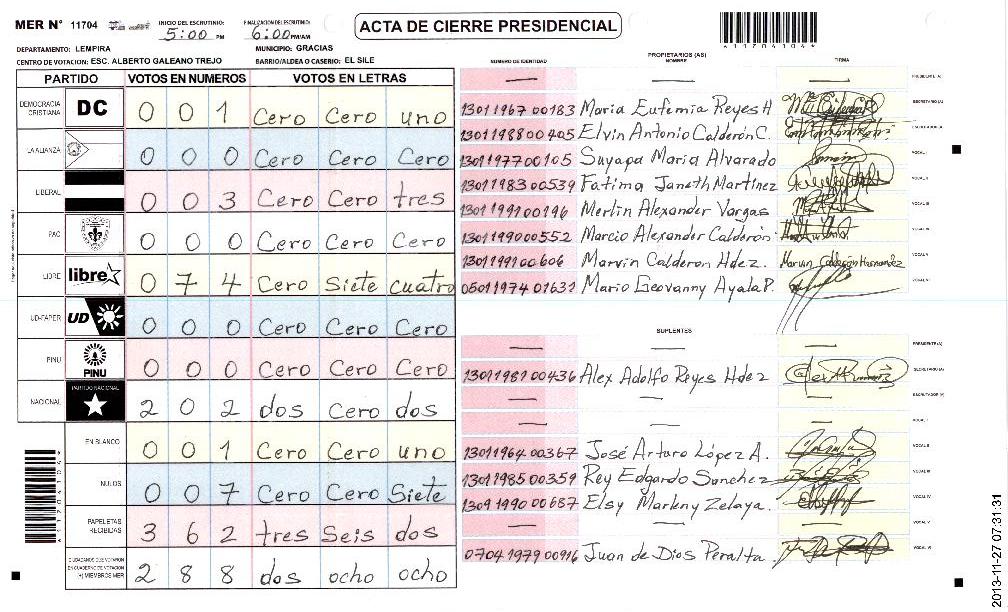 MER N° 11704 INICIO DEL ESCRUTINIO: 5:00 PM FINALIZACION DEL ESCRUTINIO: 6:00 PM/AM ACTA DE CIERRE PRESIDENCIAL
DEPARTAMENTO: LEMPIRA MUNICIPIO: GRACIAS
CENTRO DE VOTACION: ESC. ALBERTO GALEANO TREJO BARRIO/ALDEA O CASERIO: EL SILE
PARTIDO VOTOS EN NUMEROS VOTOS EN LETRAS
DEMOCRACIA CRISTIANA DC 0 0 1 Cero Cero uno
LA ALIANZA 0 0 0 Cero Cero Cero
LIBERAL 0 0 3 Cero Cero tres
PAC 0 0 0 Cero Cero Cero
LIBRE libre 0 7 4 Cero Siete cuatro
UD-FAPER UD 0 0 0 Cero Cero Cero
PINU PINU 0 0 0 Cero Cero Cero
NACIONAL PARTIDO NACIONAL 2 0 2 dos Cero dos
EN BLANCO 0 0 1 Cero Cero uno
NULOS 0 0 7 Cero Cero Siete
PAPELETAS RECIBIDAS 3 6 2 tres Seis dos
CIUDADANOS QUE VOTARON EN CUADERNO DE VOTACION (+) MIEMBROS MER 2 8 8 dos ocho ocho
PROPIETARIOS (AS)
NUMERO DE IDENTIDAD NOMBRE FIRMA
— — — PRESIDENTE (A)
1301 1967 00183 Maria Eufemia Reyes H SECRETARIO (A)
1301 1988 00405 Elvin Antonio Calderón C. ESCRUTADOR (A)
1301 1977 00105 Suyapa Maria Alvarado VOCAL I
1301 1983 00539 Fatima Janeth Martinez VOCAL II
1301 1991 00196 Merlin Alexander Vargas VOCAL III
1301 1990 00552 Marcio Alexander Calderón VOCAL IV
1301 1991 00606 Marvin Calderon Hdez. Marvin Calderón Hernandez VOCAL V
0501 1974 01631 Mario Geovanny Ayala P. VOCAL VI
SUPLENTES
— — — PRESIDENTE (A)
1301 1981 00436 Alex Adolfo Reyes Hdez SECRETARIO (A)
— — — ESCRUTADOR (A)
— — — VOCAL I
1301 1964 00367 José Arturo López A. VOCAL II
1301 1985 00359 Rey Edgardo Sanchez VOCAL III
1309 1990 00687 Elsy Marleny Zelaya. VOCAL IV
— — — VOCAL V
0704 1979 00916 Juan de Dios Peralta. VOCAL VI
*11704104*
2013-11-27 07:31:31